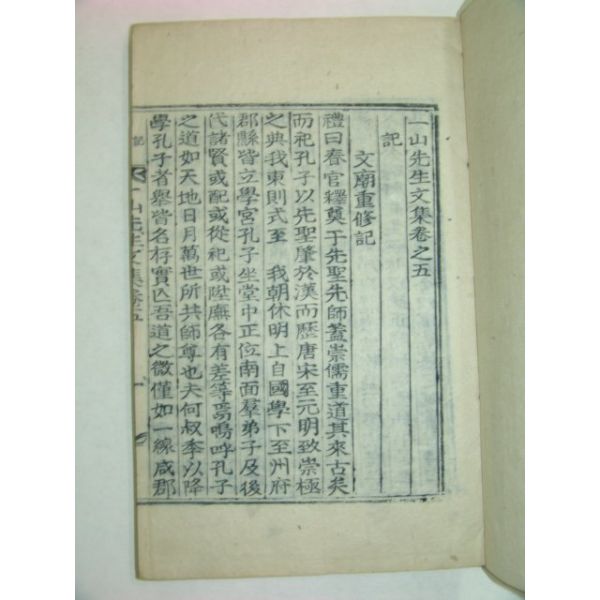 一山先生文集卷之五
記
文廟重修記
禮曰春官釋奠于先聖先師蓋崇儒重道其來古矣
而祀孔子以先聖肇於漢而歷唐宋至元明致崇極
之典我東則式至 我朝休明上自國學下至州府
郡縣皆立學宮孔子坐堂中正位南面羣弟子及後
代諸賢或配或從祀或陞廡各有差等焉嗚呼孔子
之道如天地日月萬世所共師尊也夫何叔季以降
學孔子者舉皆名存實亡吾道之微僅如一線咸郡
記
一山先生文集卷五
一